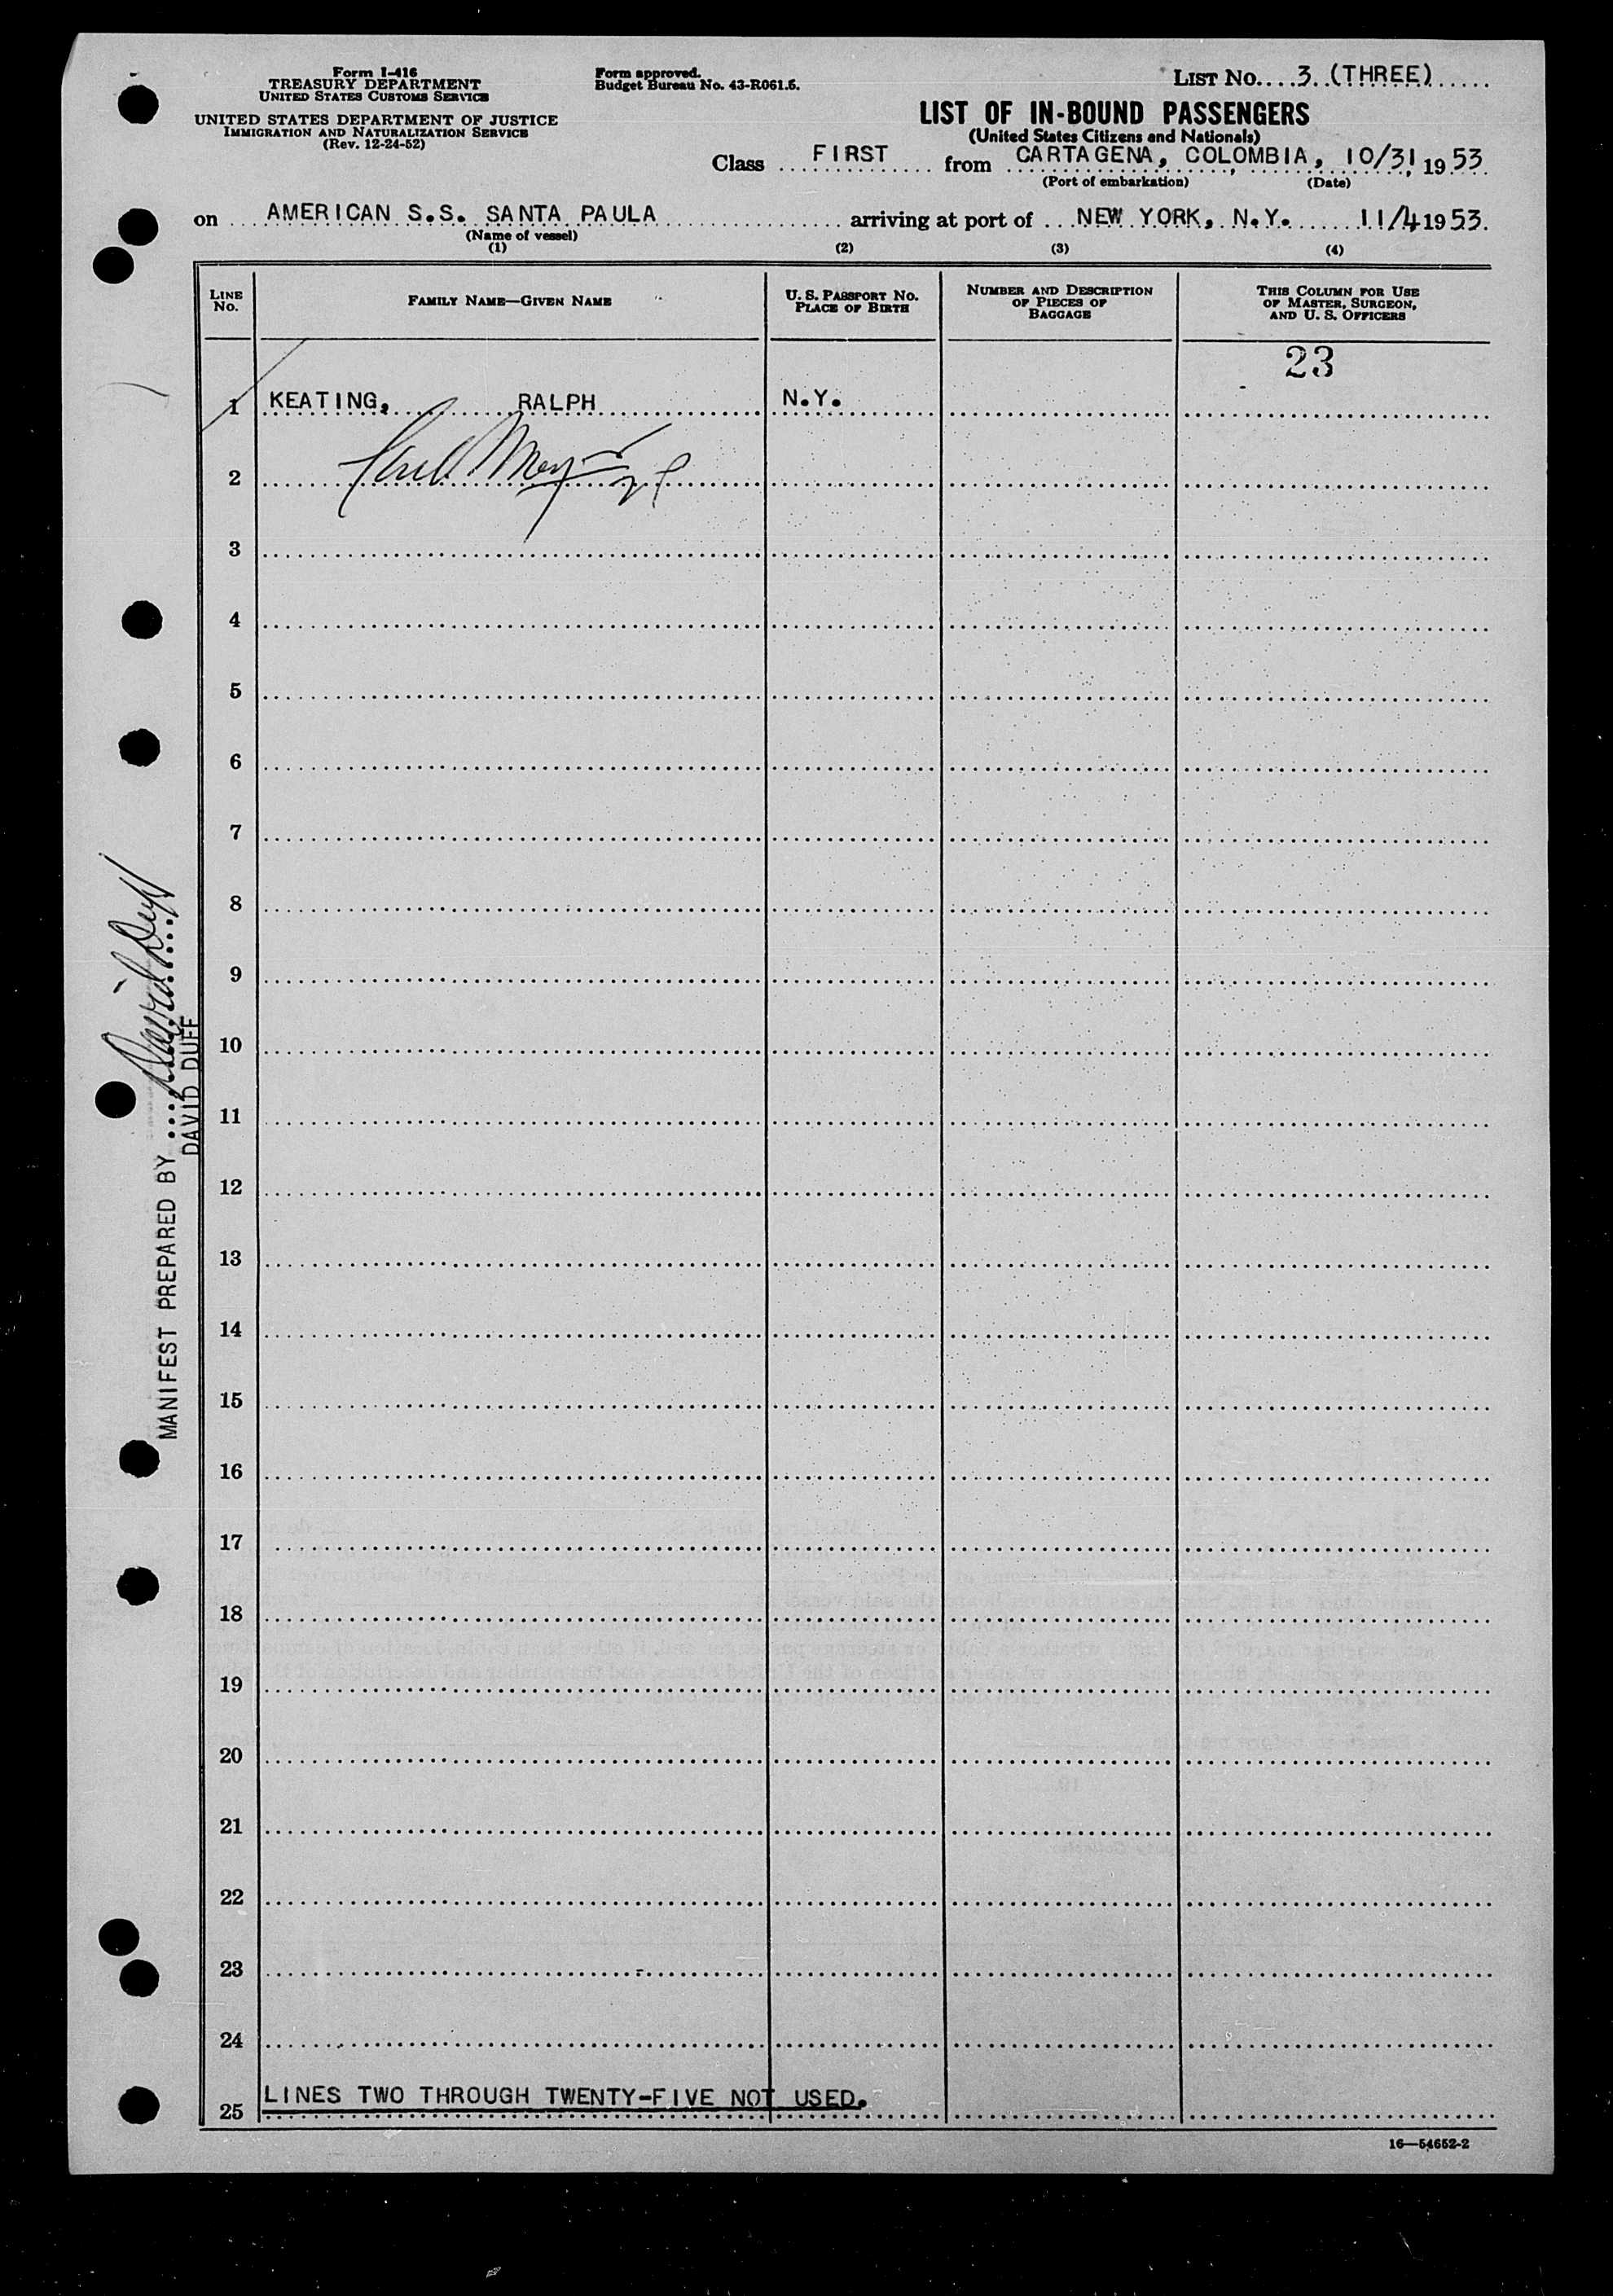 Form I-416
TREASURY DEPARTMENT
UNITED STATES CUSTOMS SERVICE
UNITED STATES DEPARTMENT OF JUSTICE
IMMIGRATION AND NATURALIZATION SERVICE
(Rev. 12-24-52)
Form approved.
Budget Bureau No. 43-R061.5.
LIST No. 3 (THREE)
LIST OF IN-BOUND PASSENGERS
(United States Citizens and Nationals)
Class FIRST from CARTAGENA, COLOMBIA, 10/31, 1953
(Port of embarkation) (Date)
on AMERICAN S.S. SANTA PAULA arriving at port of NEW YORK, N.Y. 11/4 1953.
(Name of vessel)
(1) (2) (3) (4)
LINE No.
FAMILY NAME—GIVEN NAME
U. S. PASSPORT NO.
PLACE OF BIRTH
NUMBER AND DESCRIPTION
OF PIECES OF
BAGGAGE
THIS COLUMN FOR USE
OF MASTER, SURGEON,
AND U. S. OFFICERS
23
1 KEATING, RALPH N.Y.
2
3
4
5
6
7
8
9
10
11
12
13
14
15
16
17
18
19
20
21
22
23
24
25 LINES TWO THROUGH TWENTY-FIVE NOT USED.
16—54652-2
MANIFEST PREPARED BY David Duff
DAVID DUFF